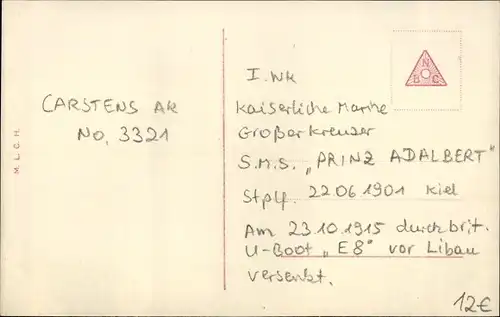 N
B C
I. WK
CARSTENS AR
No. 3321
Kaiserliche Marine
Großer Kreuzer
S.M.S. „PRINZ ADALBERT"
Stplf. 22.06 1901 Kiel
Am 23.10.1915 durch brit.
U-Boot „E8" vor Libau
versenkt.
M. L. C. H.
12€